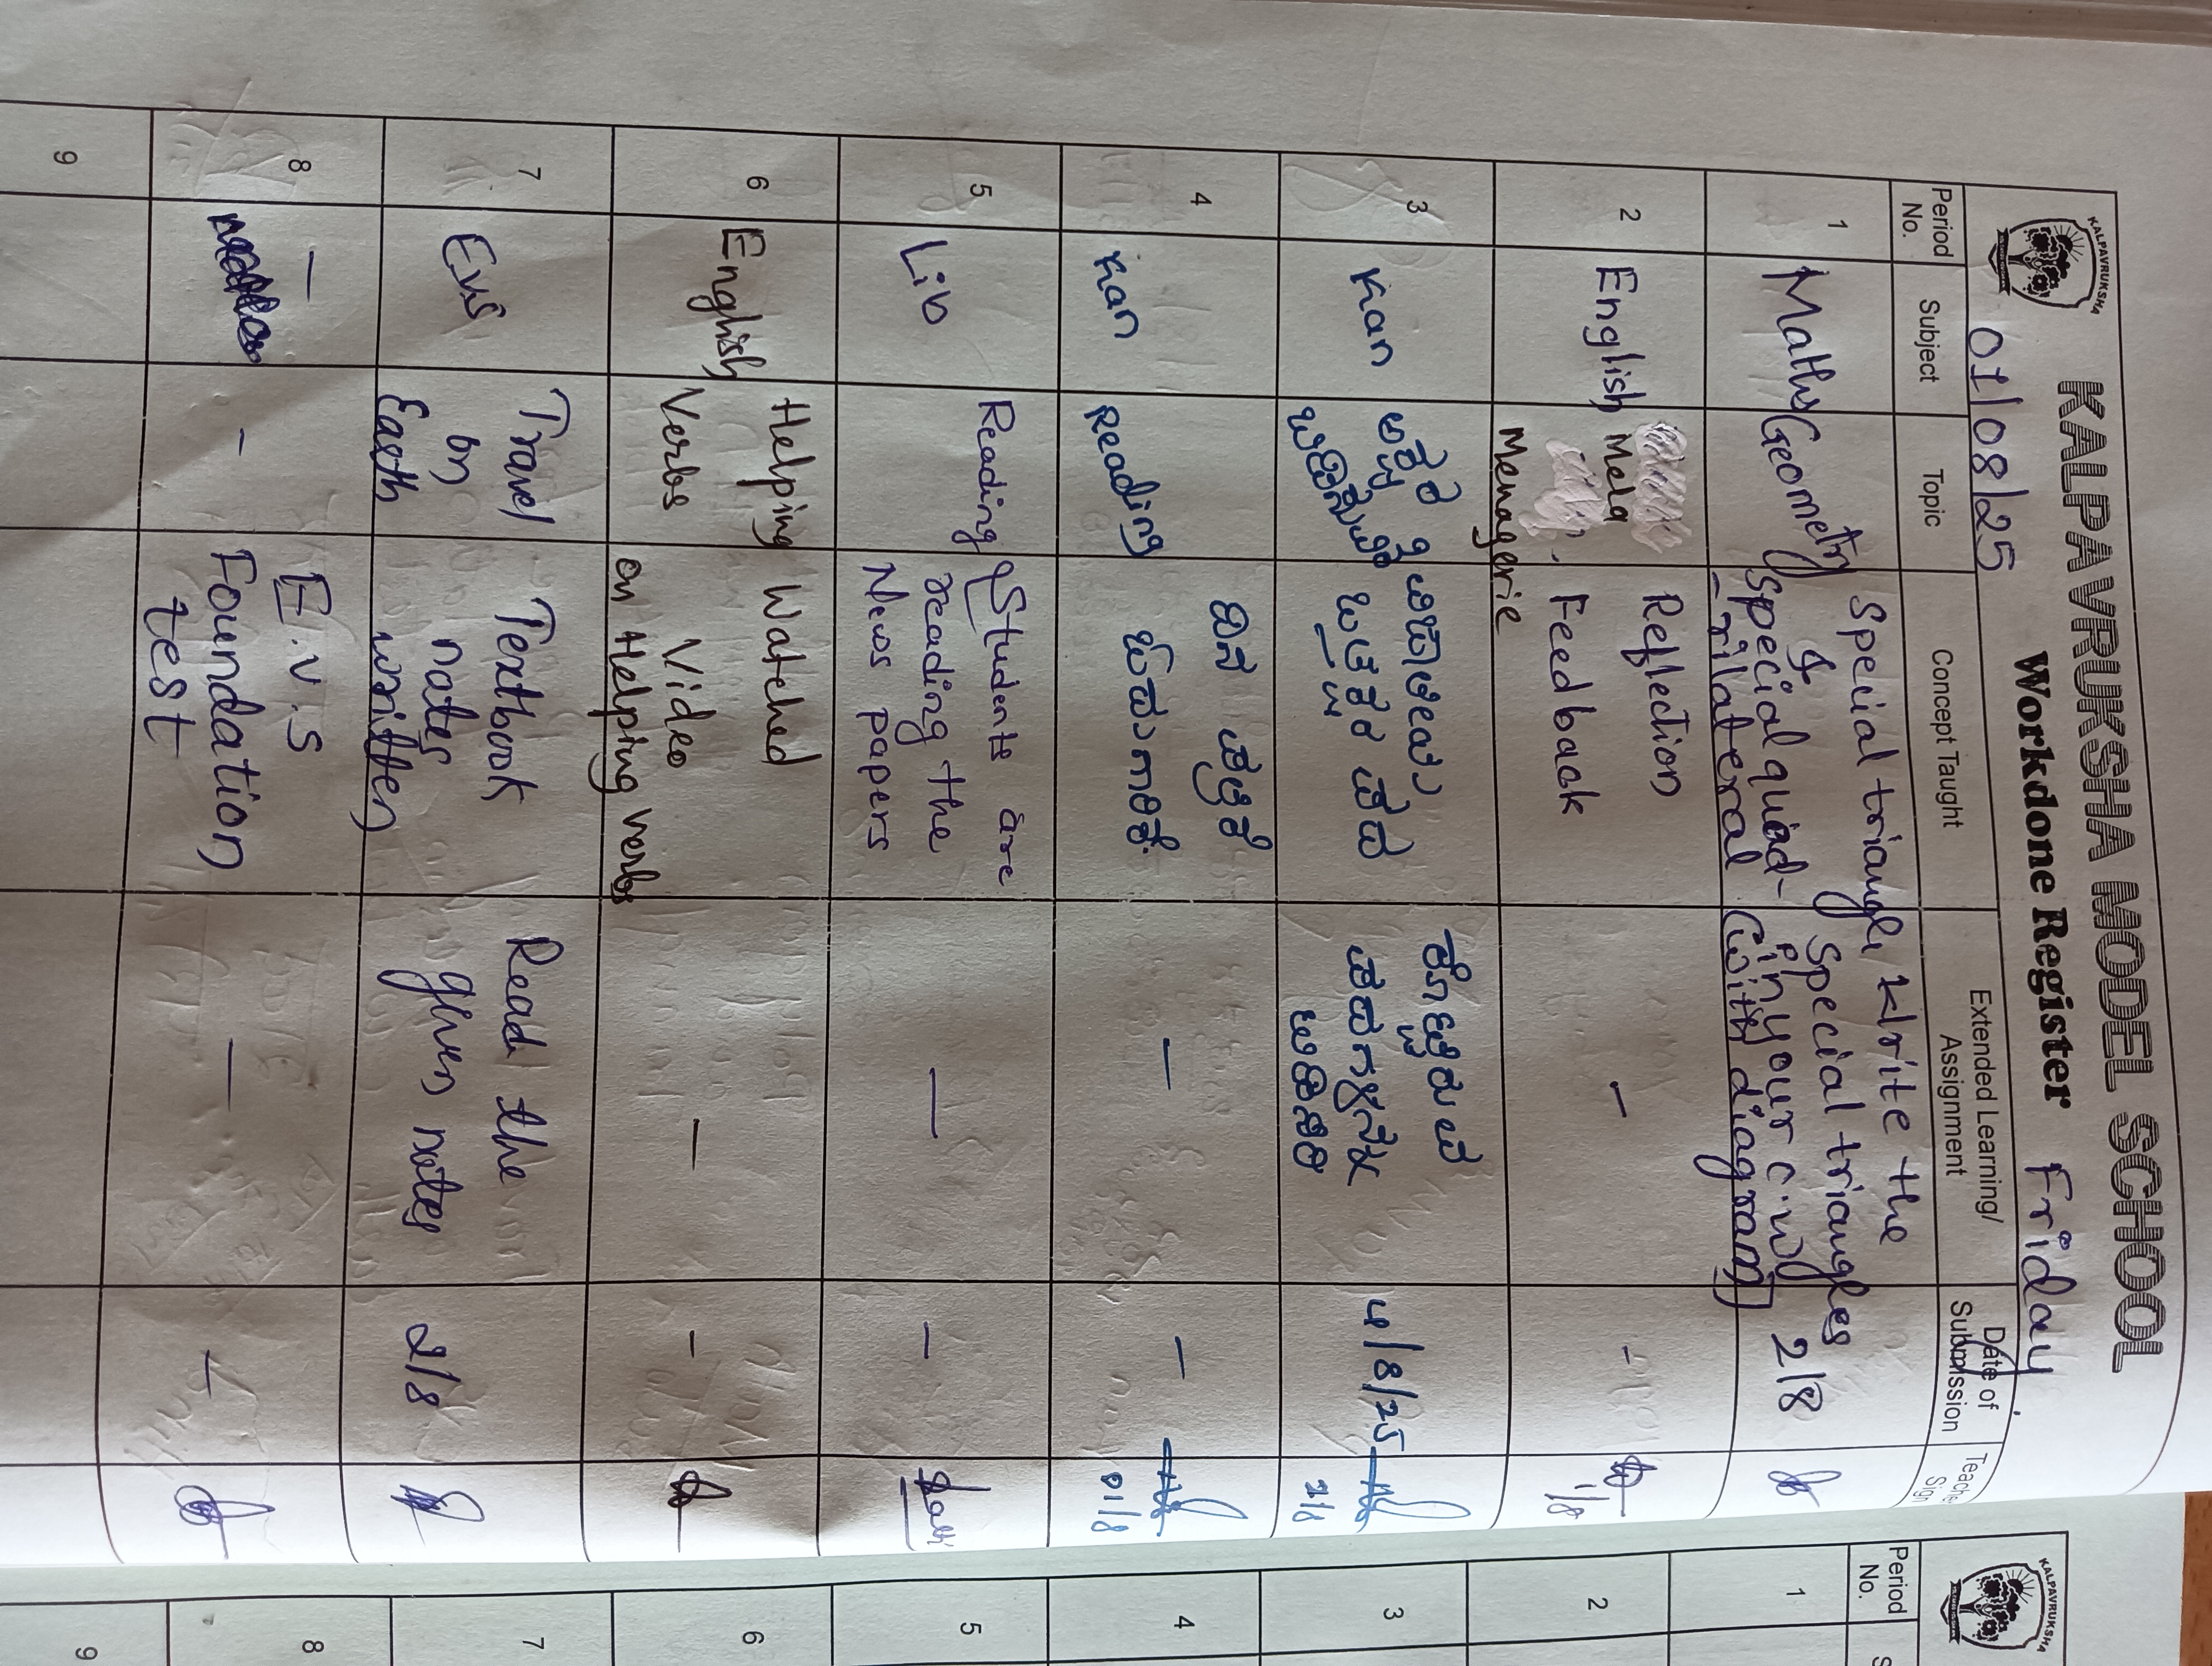 KALPAVRUKSHA MODEL SCHOOL
KALPAVRUKSHA
Workdone Register
01/08/25
Friday
Period No.
Subject
Topic
Concept Taught
Extended Learning/ Assignment
Date of Submission
Teache Sign
1
Maths
Geometry
Special triangle
&
Special quad-
-rilateral
Write the
Special triangles
in your c.w
(with diagram)
2/8
2
English
Mela
Menagerie
Reflection
Feedback
-
-
1/8
3
Kan
4/8/25
2/8
4
Kan
Reading
ದಿನ ಪತ್ರಿಕೆ
—
—
01/8
5
Lib
Reading
Students are
reading the
News papers
—
—
6
English
Helping
Verbs
Watched
Video
on Helping verbs
—
-
7
Evs
Travel
on
Earth
Textbook
notes
written
Read the
given notes
2/8
8
—
-
E.V.S
Foundation
test
—
—
9
KALPAVRUKSHA
Period No.
S
1
2
3
4
5
6
7
8
9